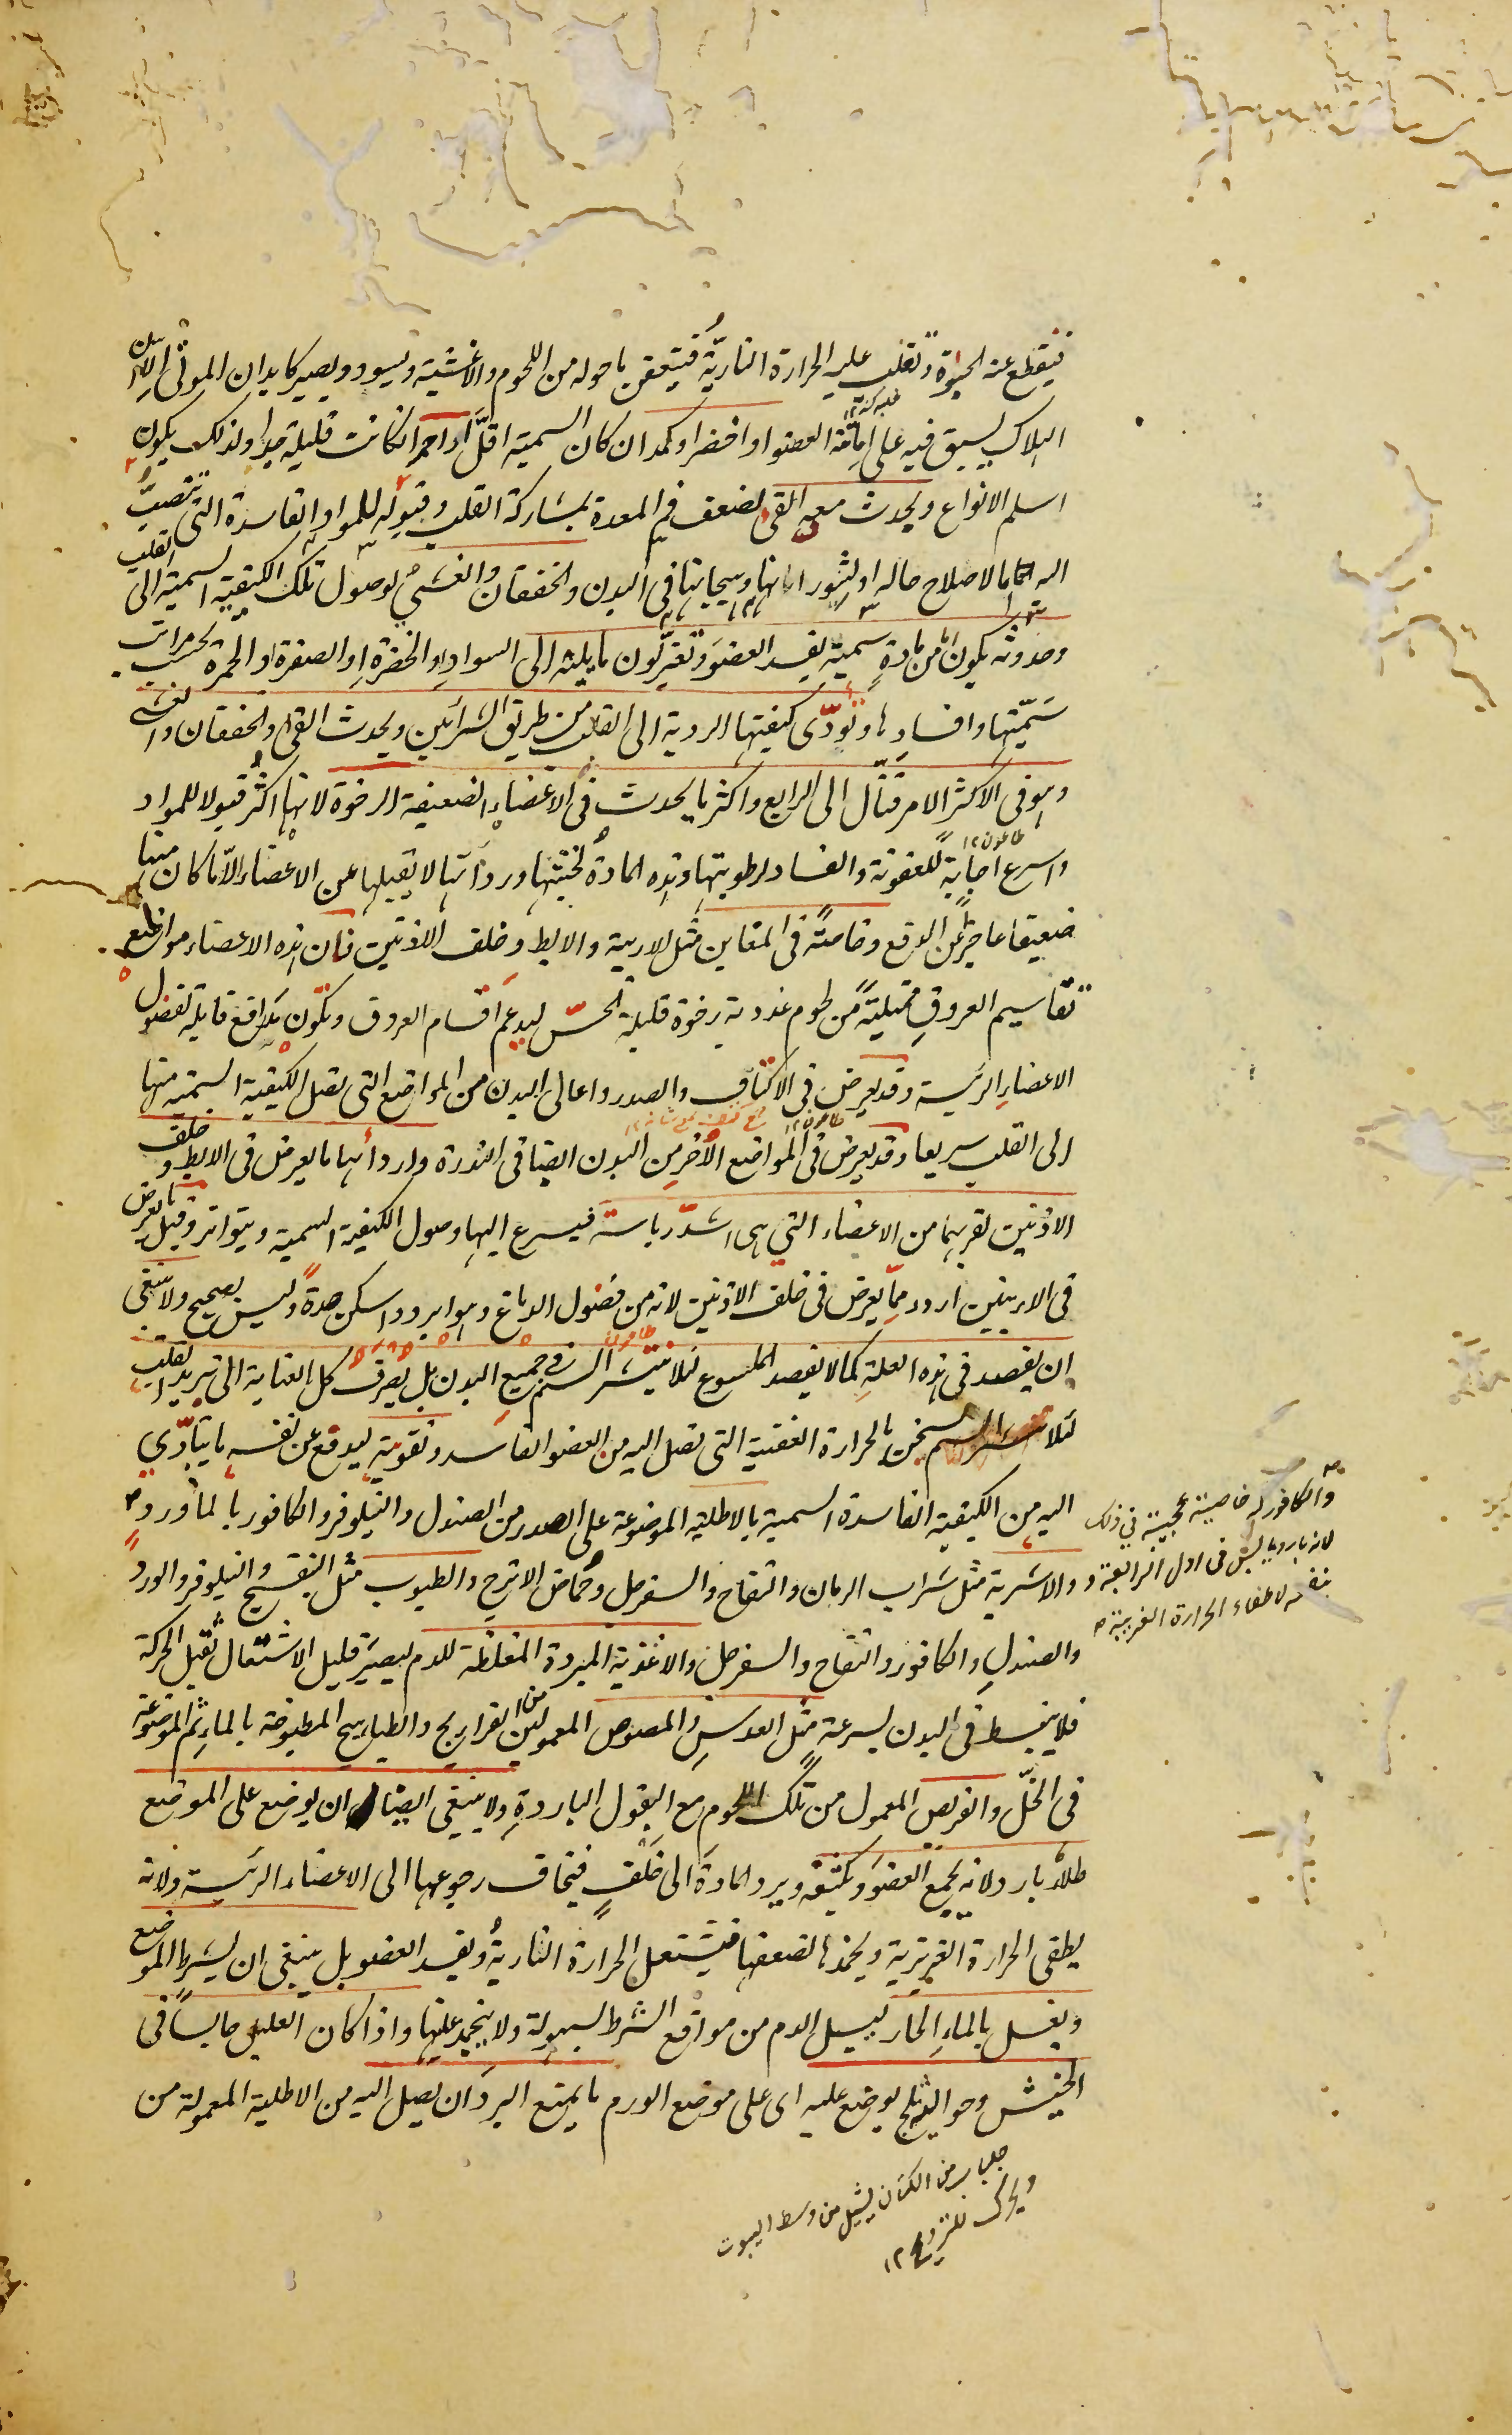 فينقطع عنه الحيوة وتغلب عليه الحرارة النارية فيتعفن ما حوله من اللحوم والاغشية ويسود ويصير كابدان الموتى الا ان
الهلاك يسبق فيه على اماتة العضو او اخضر او كمد ان كان السمية اقل او احمر ان كانت قليلة جدا ولذلك يكون
اسلم الانواع ويحدث معه القئ لضعف فم المعدة بمشاركة القلب وقبوله للمواد الفاسدة التى تنصب
اليه اما لاصلاح حاله او لثورانها وهيجانها فى البدن والخفقان والغشى لوصول تلك الكيفية السمية الى القلب
وحدوثه يكون اما من مادة سمية يفسد العضو وتغير لون ما يليه الى السواد او الخضرة او الصفرة او الحمرة بحسب مراتب
سميتها وافسادها وتؤدى كيفيتها الردية الى القلب من طريق الشرائين ويحدث القئ والخفقان والغشى
وهو فى الاكثر الامر قتال الى الرابع واكثر ما يحدث فى الاعضاء الضعيفة الرخوة لانها اكثر قبولا للمواد
طاعون ١٢
واسرع اجابة للعفونة والفساد لرطوبتها وهذه المادة لخبثها وردائتها لا تقبلها من الاعضاء الا ما كان منها
ضعيفا عاجزا عن الدفع وخاصة فى المغابن مثل الاربية والابط وخلف الاذنين فان هذه الاعضاء مواضع
تقاسيم العروق ممتلية من لحوم غددية رخوة قليلة الحس ليدعم اقسام العروق وتكون مدافع قابلة لفضول
الاعضاء الرئيسة وقد يعرض فى الاكتاف والصدر واعالى البدن من المواضع التى تصل الكيفية السمية منها
طاعون ١٢
الى القلب سريعا وقد يعرض فى المواضع الاخر من البدن ايضا فى الندرة واردأها ما يعرض فى الابط وخلف
الاذنين لقربهما من الاعضاء التى هى اشد رياسة فيسرع اليها وصول الكيفية السمية ويتواتر وقيل ما يعرض
فى الاربيتين اردء مما يعرض فى خلف الاذنين لانه من فضول الدماغ وهو ابرد واسكن حدة وليس بصحيح ولا ينبغى
طاعون
ان يفصد فى هذه العلة كما لا يفصد الملسوع لئلا ينتشر السم فى جميع البدن بل يصرف كل العناية الى تبريد القلب
لئلا يسخن بالحرارة العفنية التى تصل اليه من العضو الفاسد وتقويته ليدفع عن نفسه ما يتأدى
اليه من الكيفية الفاسدة السمية بالاطلية الموضوعة على الصدر من الصندل والنيلوفر والكافور بالماورد
والكافور له خاصية عجيبة فى ذلك
لانه بارد يابس فى اول الرابعة و
لاطفاء الحرارة الغريبة
والاشربة مثل شراب الرمان والتفاح والسفرجل وحماض الاترج والطيوب مثل البنفسج والنيلوفر والورد
والصندل والكافور والتفاح والسفرجل والاغذية المبردة المغلظة للدم ليصير قليل الاشتعال ثقيل الحركة
فلا ينبسط فى البدن بسرعة مثل العدس والمصوص المعمولين من الفراريج والطياهيج المطبوخة بالماء ثم الموضوعة
فى الخل والقريص المعمول من تلك اللحوم مع البقول الباردة ولا ينبغى ايضا ان يوضع على الموضع
طلاء بارد لانه يجمع العضو ويكثفه ويرد المادة الى خلف فيخاف رجوعها الى الاعضاء الرئيسة ولانه
يطفى الحرارة الغريزية ويخمدها لضعفها فيشتعل الحرارة النارية ويفسد العضو بل ينبغى ان يشرط الموضع
ويغسل بالماء الحار ليسيل الدم من مواقع الشرط بسهولة ولا ينجمد عليها واذا كان العليل جالسا فى
الخيش وحوالى الثلج يوضع عليه اى على موضع الورم ما يمنع البرد ان يصل اليه من الاطلية المعمولة من
جلباب من الكتان يشيل من وسط البيوت
ويحرك للترويح ١٢